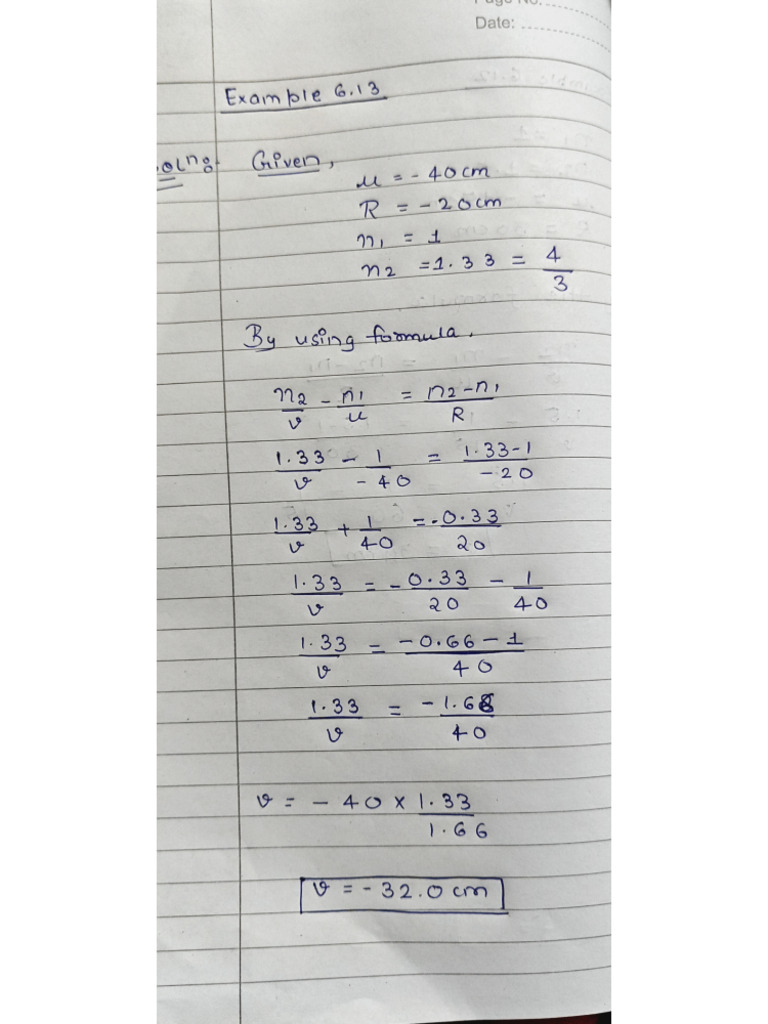 Page No.
Date:
Example 6.13
Soln:- Given,
u = -40cm
R = -20cm
n1 = 1
n2 = 1.33 = 4/3
By using formula.
n2/v - n1/u = n2-n1/R
1.33/v - 1/-40 = 1.33-1/-20
1.33/v + 1/40 = -0.33/20
1.33/v = -0.33/20 - 1/40
1.33/v = -0.66-1/40
1.33/v = -1.66/40
v = -40 x 1.33/1.66
v = -32.0 cm